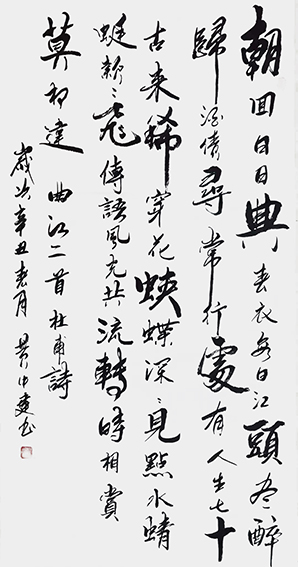 朝回日日典春衣每日江頭尽醉
歸酒債尋常行處有人生七十
古来稀穿花蛺蝶深〻見點水蜻
蜓款〻飛傳語風光共流轉時相賞
莫相違 曲江二首杜甫詩
歲次辛丑春月